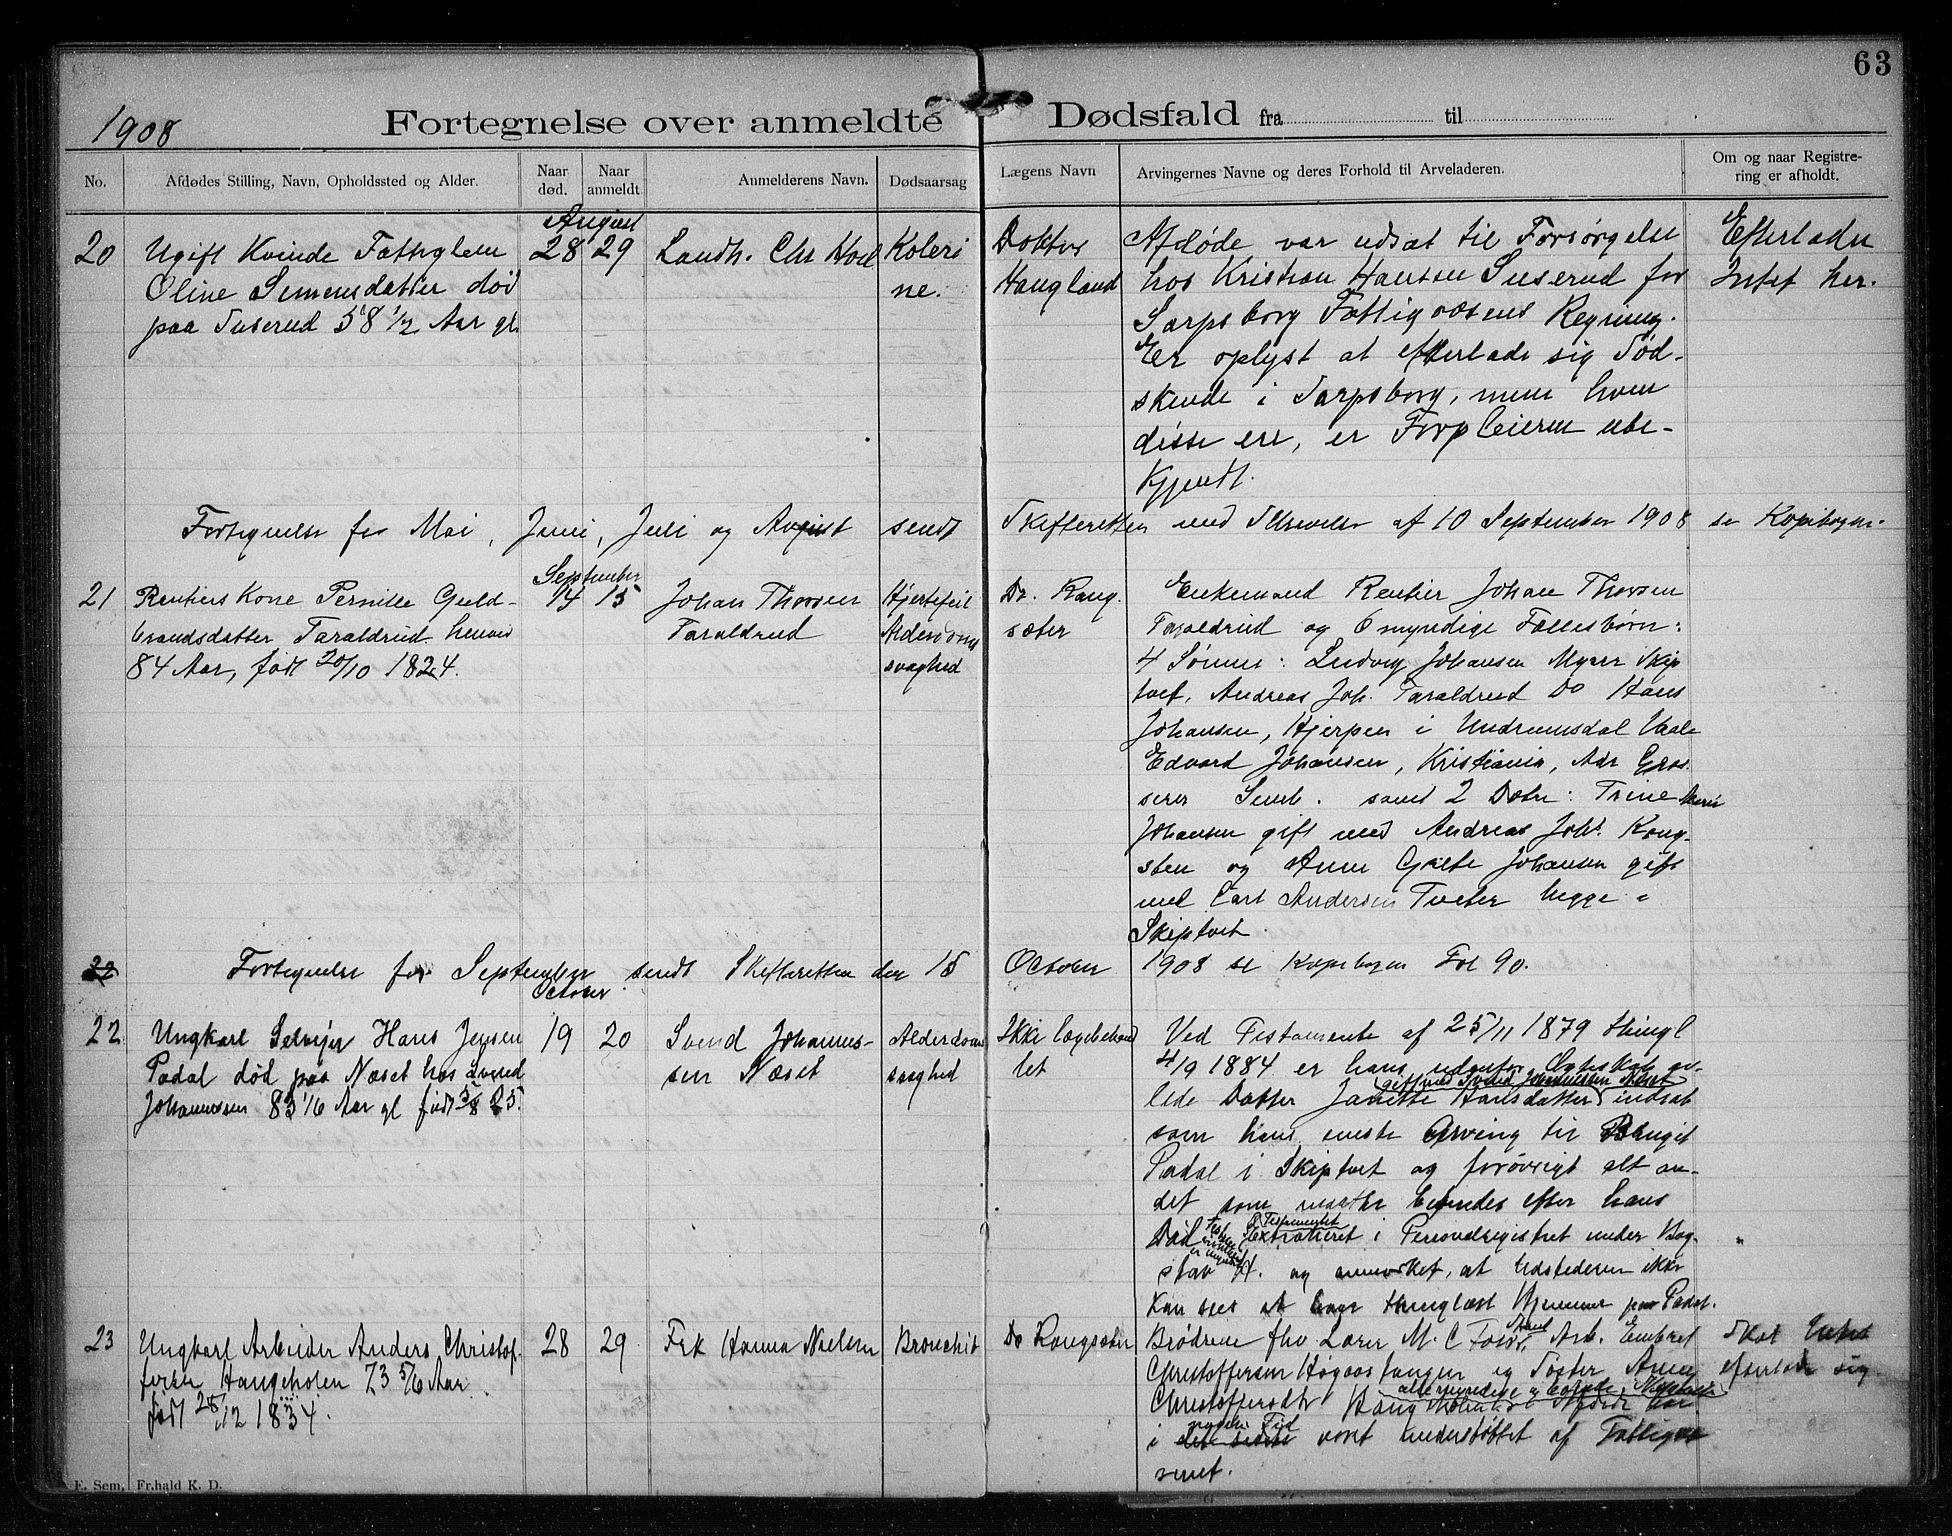 63
1908 Fortegnelse over anmeldte Dødsfald fra til
No. Afdødes Stilling, Navn, Opholdssted og Alder. Naar død. Naar anmeldt. Anmelderens Navn. Dødsaarsag Lægens Navn Arvingernes Navne og deres Forhold til Arveladeren. Om og naar Registrering er afholdt.
August
20 Ugift Kvinde Fattiglem 28 29 Landh. Chr Koleri Doktor Afdøde var udsat til Forsørgelse Efterladte
Oline Simensdatter død ne. Haugland hos Kristian Hansen Suserud for Intet her.
paa Suserud 58 1/2 Aar gl. Sarpsborg Fattigvæsens Regning.
Er oplyst at efterlade sig Sød-
skende i Sarpsborg, men hvem
disse ere, er Forpleieren ube-
kjendt.
Fortegnelse for Mai, Juni, Juli og August sendt Skifteretten med Skrivelse af 10 September 1908 se Kopibogen.
September
21 Rentiers Kone Pernille Guld- 14 15 Johan Thorsen Hjertefeil Dr. Rang. Enkemand Rentier Johan Thorsen
brandsdatter Taraldrud henved Taraldrud Alderdoms sæter Taraldrud og 6 myndige Fællesbørn:
84 Aar, født 20/10 1824. svaghed 4 Sønner: Ludvig Johansen Myrer Skip
tvet, Andreas Joh. Taraldrud Do Hans
Johansen, Hjerpen i Undrumsdal Vaale
Edvard Johansen, Kristiania, Adr Gros-
serer samt 2 Døtre: Trine Marie
Johansen gift med Andreas Joh. Kong-
sten og Anne Grete Johansen gift
med Carl Andersen Tveter begge i
Skiptvet.
22 Fortegnelse for September sendt Skifteretten den 15 October 1908 se Kopibogen Fol 90.
October
22 Ungkarl Selveier Hans Jensen 19 20 Svend Johannes- Alderdoms Ikke lægebehand Ved Testamente af 25/11 1879 thingl
Padal død paa Næset hos Svend sen Næset svaghed let 4/9 1884 er hans udenfor Ægteskab av-
gift med Svend Johannessen Næset
Johannessen 83 1/6 Aar gl født 5/8 25. lede Datter Janette Hansdatter indsat
som hans eneste Arving til Bruget
Padal i Skiptvet og forøvrigt alt an-
det som maatte befindes efter hans
Testamentet
Død Extraheret i Personalregistret under Bog- "
stav H. og anmerket, at Udstederen ikke
kan sees at have thinglæst Hjemmel paa Padal.
23 Ungkarl Arbeider Anders Christof- 28 29 Frk Hanna Nielsen Bronchit Dr Rangsæter Brødrene fhv Lærer M. C Arb. Embret Skal Intet
fersen Haugholen 73 5/6 Aar Christoffersen Høgaasstangen og Søster Anne efterlade sig
alle myndige
født 28/12 1834. Christoffersdtr
nogen Tid
i det sidste været understøttet af Fattigvæ
senet.
E. Sem, Fr.hald K. D.